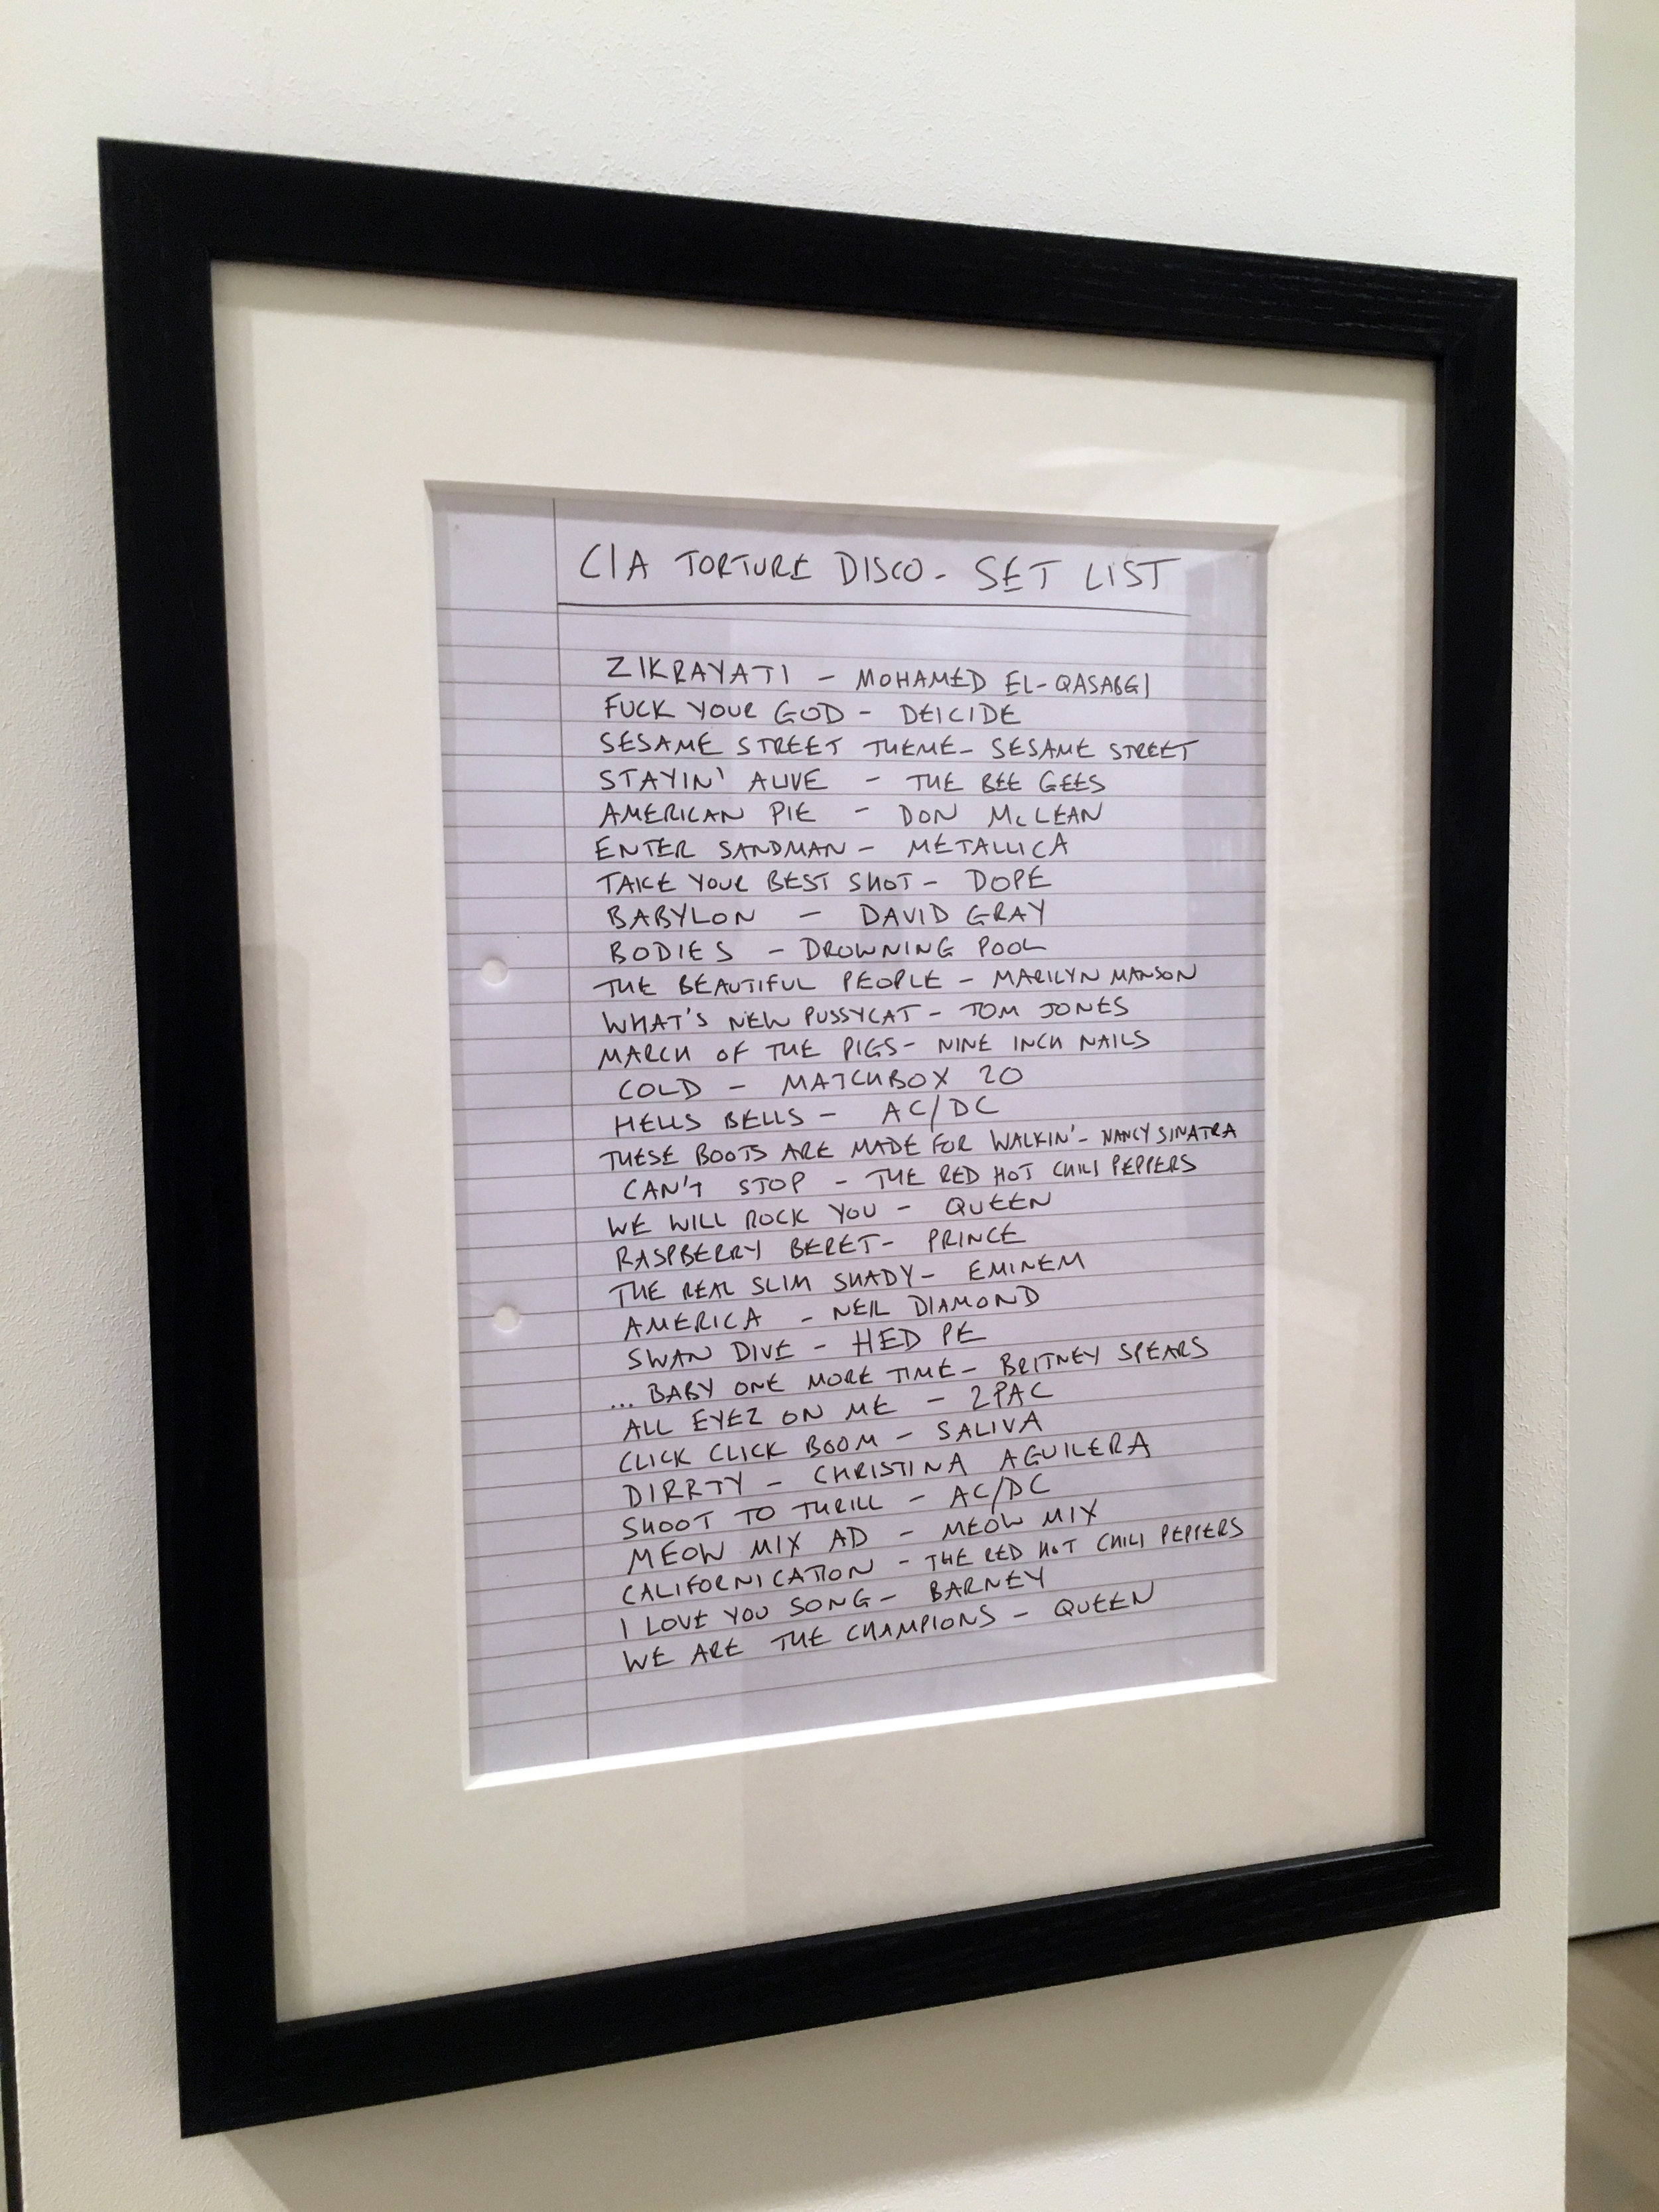 CIA TORTURE DISCO - SET LIST
ZIKRAYATI - MOHAMED EL-QASABGI
FUCK YOUR GOD - DEICIDE
SESAME STREET THEME - SESAME STREET
STAYIN' ALIVE - THE BEE GEES
AMERICAN PIE - DON McLEAN
ENTER SANDMAN - METALLICA
TAKE YOUR BEST SHOT - DOPE
BABYLON - DAVID GRAY
BODIES - DROWNING POOL
THE BEAUTIFUL PEOPLE - MARILYN MANSON
WHAT'S NEW PUSSYCAT - TOM JONES
MARCH OF THE PIGS - NINE INCH NAILS
COLD - MATCHBOX 20
HELLS BELLS - AC/DC
THESE BOOTS ARE MADE FOR WALKIN' - NANCY SINATRA
CAN'T STOP - THE RED HOT CHILI PEPPERS
WE WILL ROCK YOU - QUEEN
RASPBERRY BERET - PRINCE
THE REAL SLIM SHADY - EMINEM
AMERICA - NEIL DIAMOND
SWAN DIVE - HED PE
... BABY ONE MORE TIME - BRITNEY SPEARS
ALL EYEZ ON ME - 2PAC
CLICK CLICK BOOM - SALIVA
DIRRTY - CHRISTINA AGUILERA
SHOOT TO THRILL - AC/DC
MEOW MIX AD - MEOW MIX
CALIFORNICATION - THE RED HOT CHILI PEPPERS
I LOVE YOU SONG - BARNEY
WE ARE THE CHAMPIONS - QUEEN